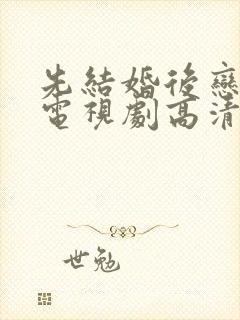 先結婚後戀
電視劇高清
世勉